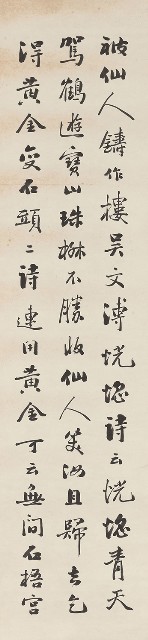 被仙人鑄作樓吴文溥恍惚詩云恍惚青天
駕鶴遊寶山珠樹不勝收仙人笑汝且歸去乞
得黃金變石頭二詩連用黃金可云無間石梧宫